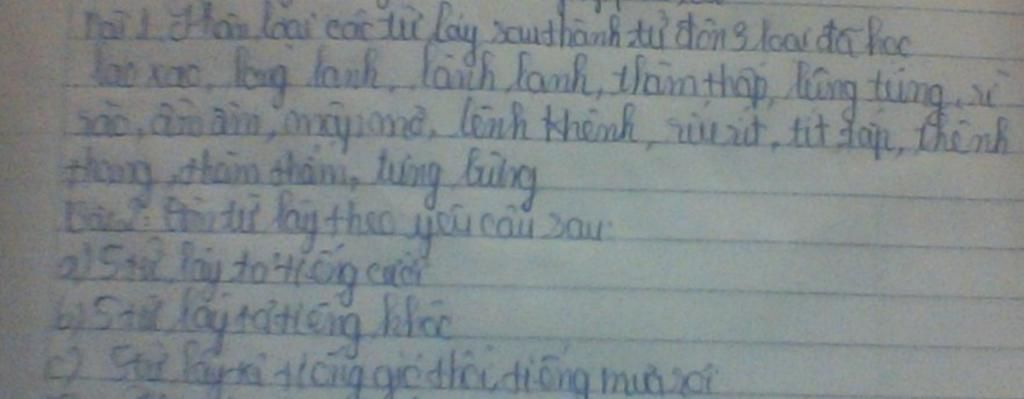 Bài 1 Phân loại các từ láy sau thành từ đúng 3 loại đã học
lao xao, long lanh, lành lạnh, thăm thẳp, lúng túng, rì
rào, ầm ầm, lênh khênh, ríu rít, tít tắp, thênh
thang, thăm thẳm, tưng bừng
Bài 2: Tìm từ láy theo yêu cầu sau:
a) 5 từ láy tả tiếng cười
b) 5 từ láy tả tiếng khóc
c) 5 từ láy tả tiếng gió thổi tiếng mưa rơi